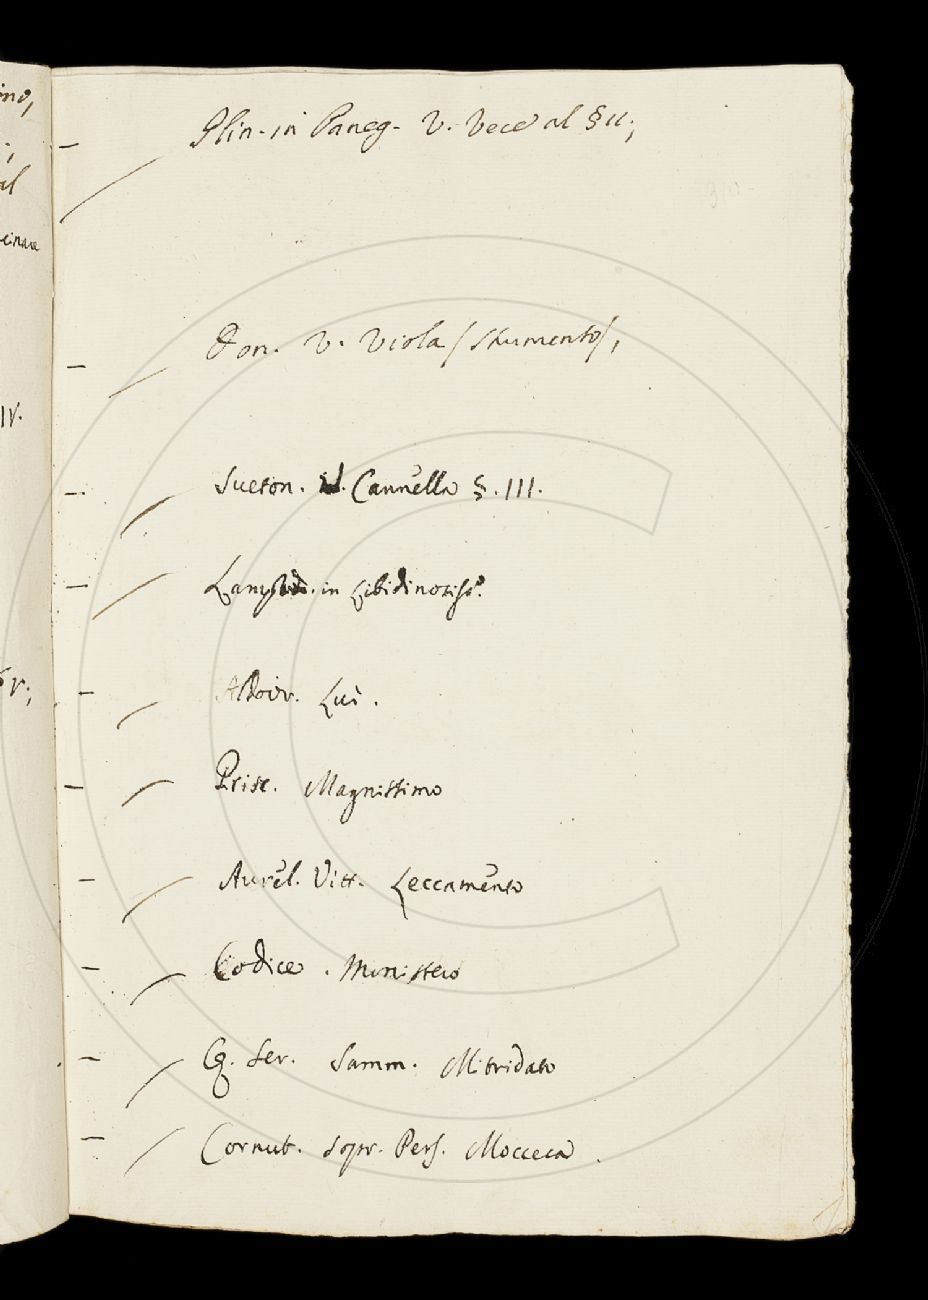 Plin. in Paneg. V. Vece al § 11;
Don. V. Viola (strumento),
Sueton. V. Cannella §. III.
in Libidinosiss.
Lui.
Prisc. Magnissimo
Aurel. Vitt. Leccamento
Codice. Ministero
Q. Ser. Samm. Mitridato
Cornut. sopr. Pers. Mocceca.